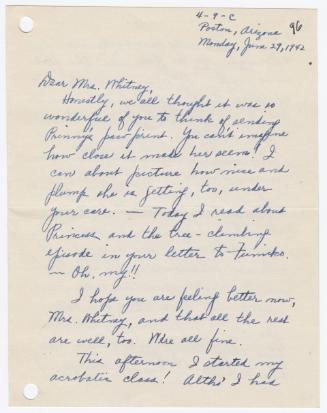 4-9-C
96
Poston, Arizona
Monday, June 29, 1942
Dear Mrs. Whitney,
Honestly, we all thought it was so
wonderful of you to think of sending
Prinny's paw print. You can't imagine
how close it makes her seem! I
can about picture how nice and
plump she is getting, too, under
your care. — Today I read about
Princess and the tree-climbing
episode in your letter to Fumiko.
— Oh, my!!
I hope you are feeling better now,
Mrs. Whitney, and that all the rest
are well, too. We're all fine.
This afternoon I started my
acrobatic class! Altho' I had